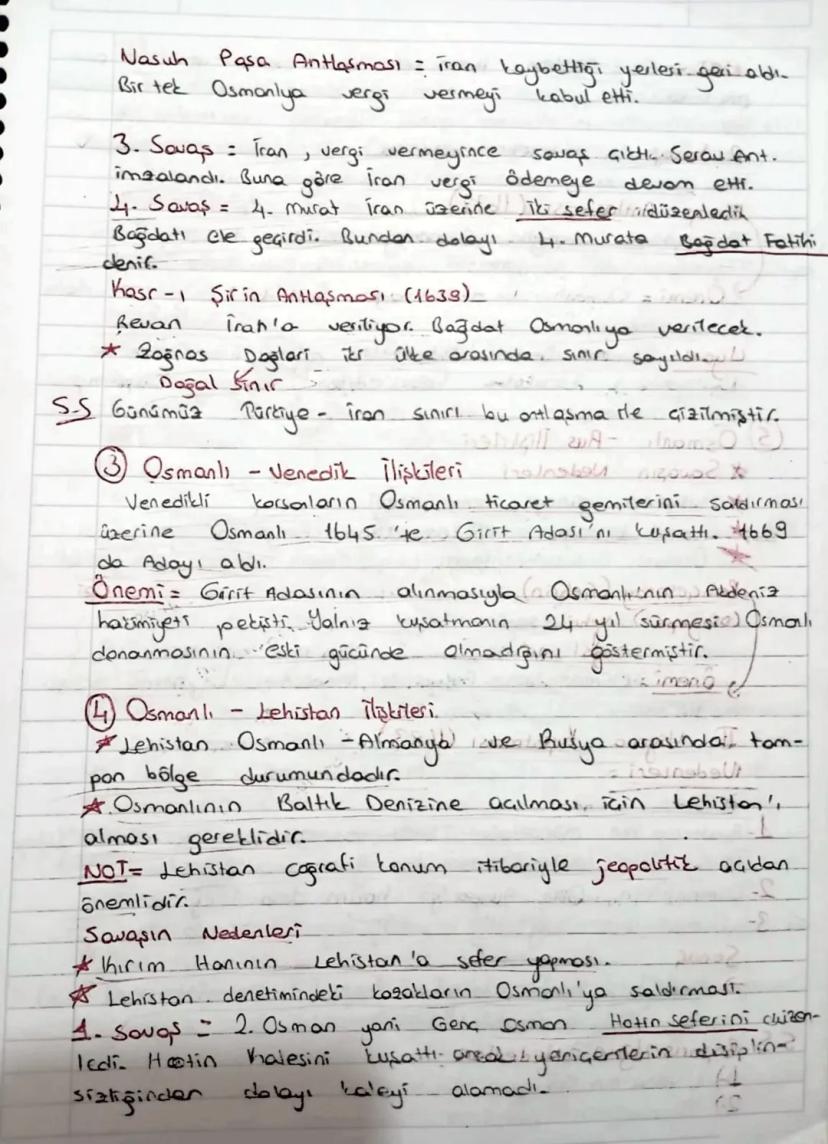 Nasuh Paşa Antlaşması = İran kaybettiği yerleri geri aldı.
Bir tek Osmanlıya vergi vermeyi kabul etti.
3. Savaş = İran, vergi vermeyince savaş çıktı. Serav Ant.
imzalandı. Buna göre İran vergi ödemeye devam etti.
4. Savaş = 4. Murat İran üzerine iki sefer düzenledi
Bağdatı ele geçirdi. Bundan dolayı 4. Murata Bağdat Fatihi
denir.
Kasr-ı Şirin Antlaşması (1639)
Revan İran'a veriliyor. Bağdat Osmanlıya verilecek.
* Zağros Dağları iki ülke arasında sınır sayıldı.
Doğal Sınır
S.S Günümüz Türkiye - İran sınırı bu antlaşma ile çizilmiştir.
3 Osmanlı - Venedik İlişkileri
Venedikli korsanların Osmanlı ticaret gemilerini saldırması
üzerine Osmanlı 1645 'te Girit Adası'nı kuşattı. 1669
da Adayı aldı.
Önemi = Girit Adasının alınmasıyla Osmanlı'nın Akdeniz
hakimiyeti pekişti. Yalnız kuşatmanın 24 yıl sürmesi Osmanlı
donanmasının eski gücünde olmadığını göstermiştir.
4 Osmanlı - Lehistan İlişkileri
* Lehistan Osmanlı - Almanya ve Rusya arasında tam-
pon bölge durumundadır.
* Osmanlının Baltık Denizine açılması için Lehistan'ı
alması gereklidir.
NOT= Lehistan coğrafi konum itibariyle jeopolitik açıdan
önemlidir.
Savaşın Nedenleri
* Kırım Hanının Lehistan'a sefer yapması.
* Lehistan denetimindeki kozakların Osmanlı'ya saldırması.
1. Savaş = 2. Osman yani Genç Osman Hotin seferini düzen-
ledi. Hotin kalesini kuşattı ancak yeniçerilerin disiplin-
sizliğinden dolayı kaleyi alamadı.